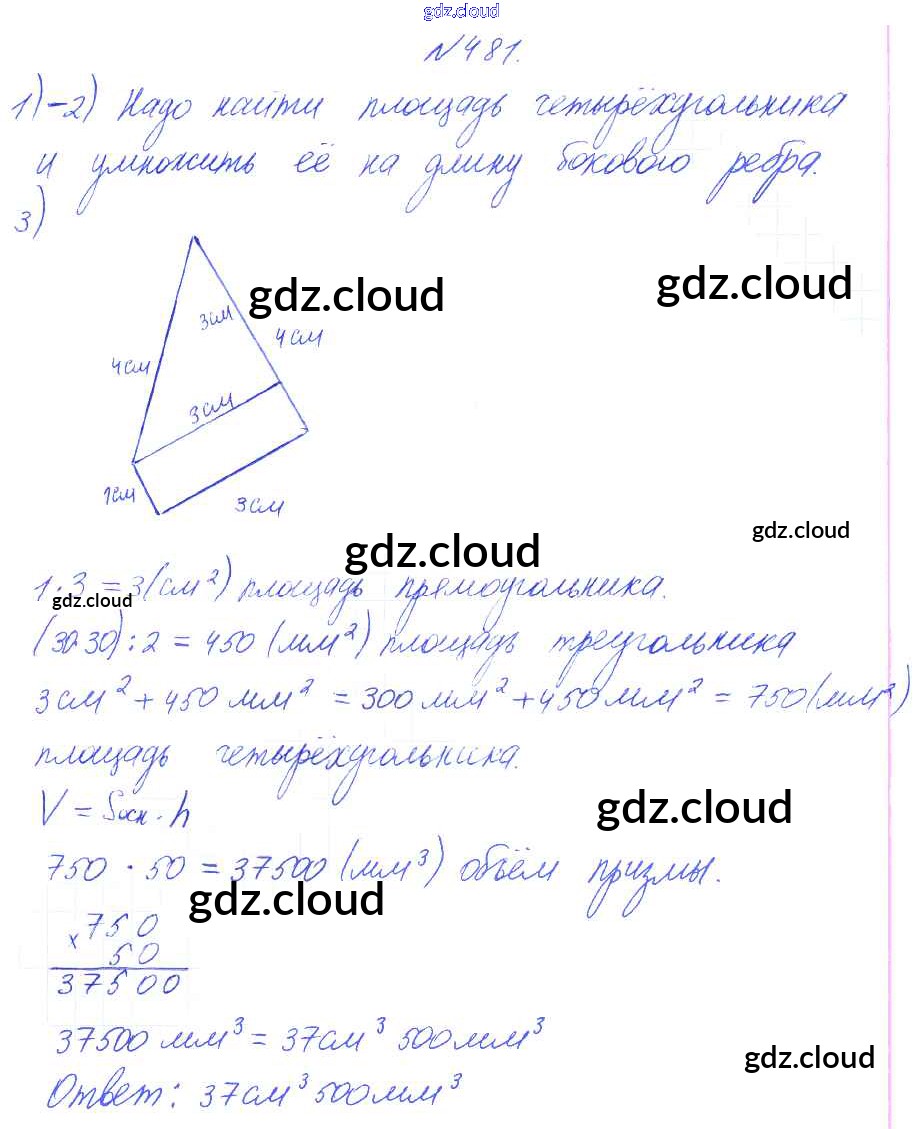 gdz.cloud
№481.
1)-2) Надо найти площадь четырёхугольника
и умножить её на длину бокового ребра.
3)
gdz.cloud
gdz.cloud
3см
4см
4см
3см
1см
3см
gdz.cloud
gdz.cloud
1·3=3(см²) площадь прямоугольника.
gdz.cloud
(30·30):2=450(мм²) площадь треугольника
3см²+450мм²=300мм²+450мм²=750(мм²)
площадь четырёхугольника.
V=Sосн·h
gdz.cloud
750·50=37500(мм³) объём призмы.
gdz.cloud
x 750
50
37500
37500мм³=37см³ 500мм³
gdz.cloud
Ответ: 37см³ 500мм³